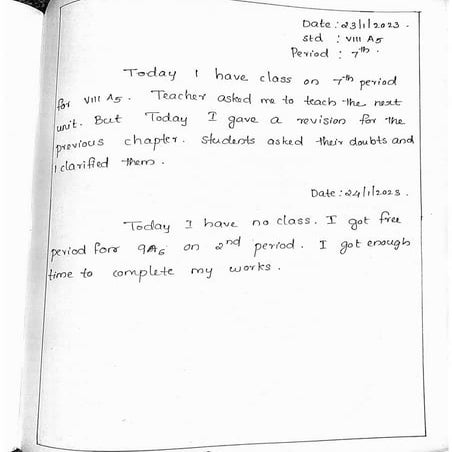 Date : 23/1/2023 .
Std : VIII A5
Period : 7th .
Today I have class on 7th period
for VIII A5 . Teacher asked me to teach the next
unit. But Today I gave a revision for the
previous chapter. Students asked their doubts and
I clarified them .
Date : 24/1/2023 .
Today I have no class. I got free
period for 9A5 on 2nd period . I got enough
time to complete my works .